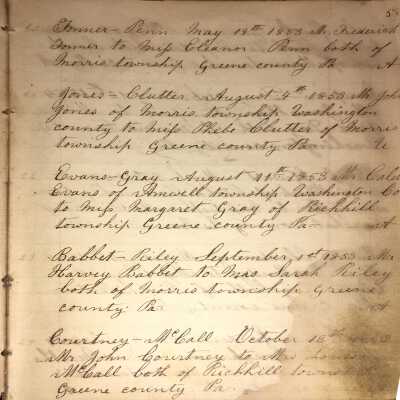 Penn May 19th 1853 Mr. Frederick
to Miss Eleanor Penn both of
Morris township Greene county Pa A
Jones – Clutter August 4th 1853 Mr John
Jones of Morris township Washington
county to miss Phebe Clutter of Morris
township Greene county Pa
Evans – Gray August 11th 1853 Mr Caleb
Evans of Amwell township Washington Co
to Miss Margaret Gray of Richhill
township Greene county Pa A
Babbet – Riley September 1st 1853 Mr
Harvey Babbet to Sarah Riley
both of Morris township Greene
county Pa A
Courtney – McCall October 18th
Mr John Courtney to
McCall both of Richhill township
Greene county Pa